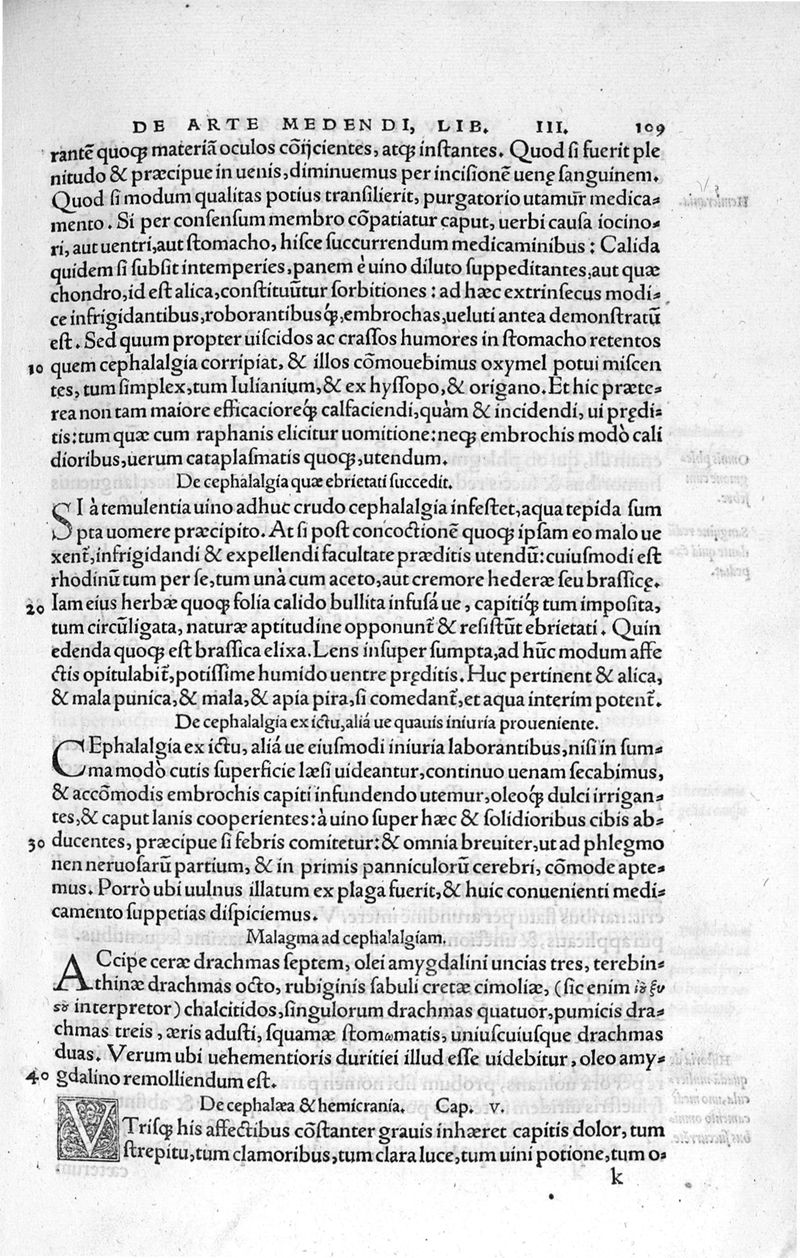 DE ARTE MEDENDI, LIB. III. 109
rantē quoq; materiā oculos cōijcientes, atq; instantes. Quod si fuerit ple
nitudo & præcipue in uenis, diminuemus per incisionē uenę sanguinem.
Quod si modum qualitas potius transilierit, purgatorio utamur̄ medica-
mento. Si per consensum membro cōpatiatur caput, uerbi causa iocino-
ri, aut uentri, aut stomacho, hisce succurrendum medicaminibus: Calida
quidem si subsit intemperies, panem è uino diluto suppeditantes, aut quæ
chondro, id est alica, constituūtur sorbitiones: ad hæc extrinsecus modi-
ce infrigidantibus, roborantibusq́;, embrochas, ueluti antea demonstratū
est. Sed quum propter uiscidos ac crassos humores in stomacho retentos
10 quem cephalalgia corripiat, & illos cōmouebimus oxymel potui miscen
tes, tum simplex, tum Iulianium, & ex hyssopo, & origano. Et hic præte-
rea non tam maiore efficacioreq́; calfaciendi, quàm & incidendi, ui prędi-
tis: tum quæ cum raphanis elicitur uomitione: neq; embrochis modò cali
dioribus, uerum cataplasmatis quoq;, utendum.
De cephalalgia quæ ebrietati succedit.
SI à temulentia uino adhuc crudo cephalalgia infestet, aqua tepida sum
pta uomere præcipito. At si post concoctionē quoq; ipsam eo malo ue
xent̄, infrigidandi & expellendi facultate præditis utendū: cuiusmodi est
rhodinū tum per se, tum unà cum aceto, aut cremore hederæ seu brassicę.
20 Iam eius herbæ quoq; folia calido bullita infusá ue, capitiq́; tum imposita,
tum circūligata, naturæ aptitudine opponunt̄ & resistūt ebrietati. Quin
edenda quoq; est brassica elixa. Lens insuper sumpta, ad hūc modum affe
ctis opitulabit̄, potissime humido uentre pręditis. Huc pertinent & alica,
& mala punica, & mala, & apia pira, si comedant̄, et aqua interim potent̄.
De cephalalgia ex ictu, aliá ue quauis iniuria proueniente.
CEphalalgia ex ictu, aliá ue eiusmodi iniuria laborantibus, nisi in sum-
ma modò cutis superficie læsi uideantur, continuo uenam secabimus,
& accōmodis embrochis capiti infundendo utemur, oleoq́; dulci irrigan-
tes, & caput lanis cooperientes: à uino super hæc & solidioribus cibis ab-
30 ducentes, præcipue si febris comitetur: & omnia breuiter, ut ad phlegmo
nen neruosarū partium, & in primis panniculorū cerebri, cōmode apte-
mus. Porrò ubi uulnus illatum ex plaga fuerit, & huic conuenienti medi-
camento suppetias dispiciemus.
Malagma ad cephalalgiam.
ACcipe ceræ drachmas septem, olei amygdalini uncias tres, terebin-
thinæ drachmas octo, rubiginis sabuli cretæ cimoliæ, (sic enim
interpretor) chalcitidos, singulorum drachmas quatuor, pumicis dra-
chmas treis, æris adusti, squamæ stomωmatis, uniuscuiusque drachmas
duas. Verum ubi uehementioris duritiei illud esse uidebitur, oleo amy-
40 gdalino remolliendum est.
De cephalæa & hemicrania. Cap. v.
VTrisq; his affectibus cōstanter grauis inhæret capitis dolor, tum
strepitu, tum clamoribus, tum clara luce, tum uini potione, tum o-
k